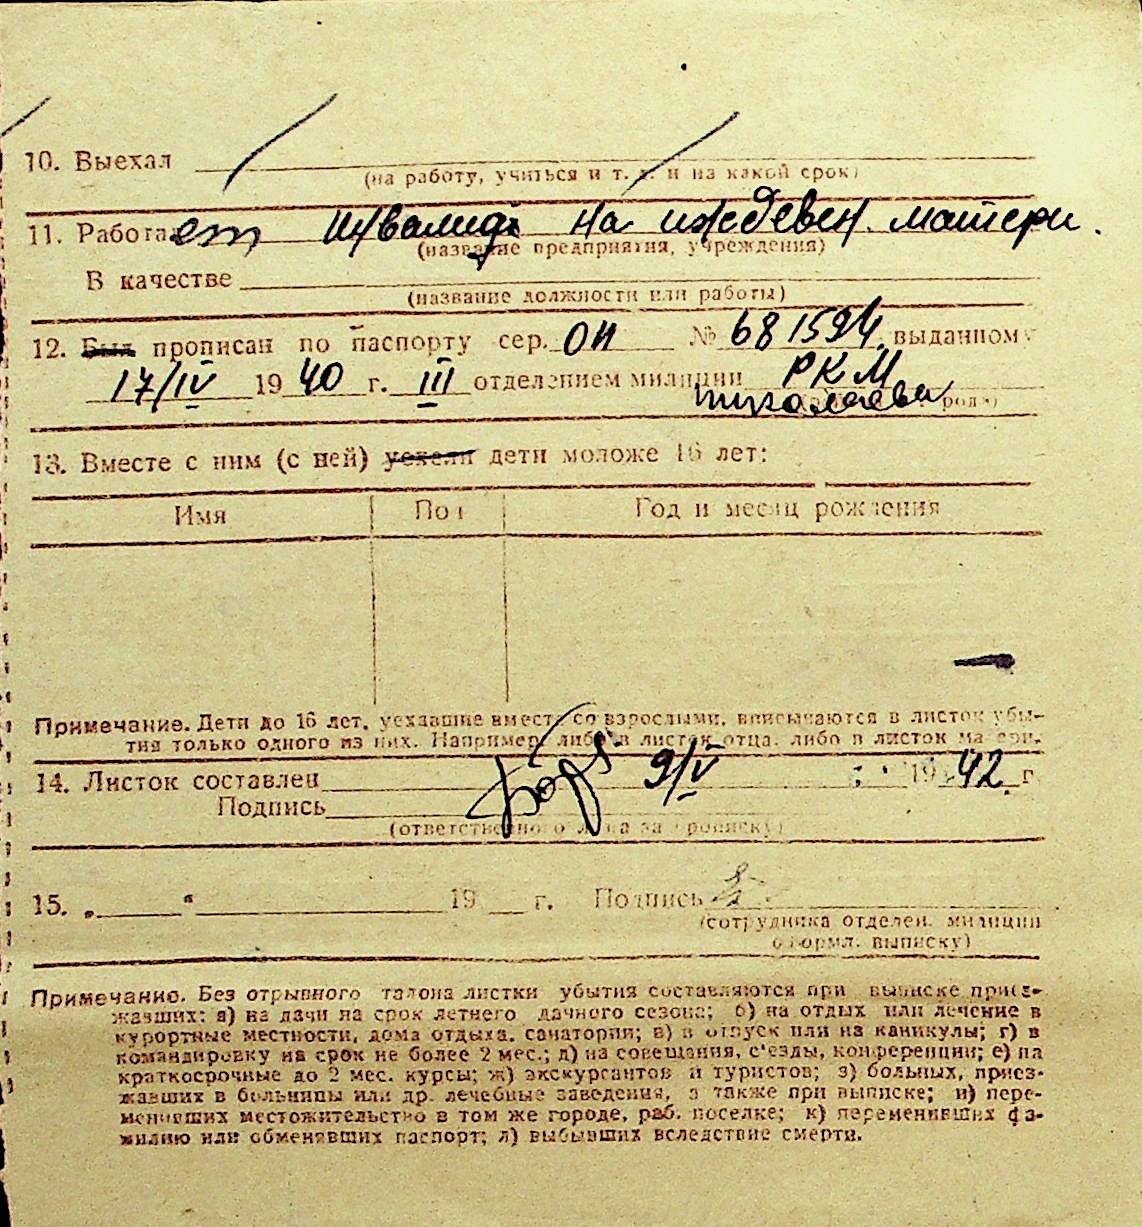 10. Выехал
(на работу, учиться и т. д. и на какой срок)
11. Работает Инвалид на иждевен. матери.
(название предприятия, учреждения)
В качестве
(название должности или работы)
12. Был прописан по паспорту сер. ОН № 681594 выданному
17/IV 1940 г. III отделением милиции РКМ
Николаева
13. Вместе с ним (с ней) уехали дети моложе 16 лет:
Имя Пол Год и месяц рождения
Примечание. Дети до 16 лет, уехавшие вместе со взрослыми, вписываются в листок убы-
тия только одного из них. Например, либо в листок отца, либо в листок матери.
14. Листок составлен 9/V 1942 г.
Подпись
(ответственного лица за прописку)
15. „ “ 19 г. Подпись
(сотрудника отделен. милиции
оформл. выписку)
Примечание. Без отрывного талона листки убытия составляются при выписке приез-
жавших: а) на дачи на срок летнего дачного сезона; б) на отдых или лечение в
курортные местности, дома отдыха, санатории; в) в отпуск или на каникулы; г) в
командировку на срок не более 2 мес.; д) на совещания, с'езды, конференции; е) на
краткосрочные до 2 мес. курсы; ж) экскурсантов и туристов; з) больных, приез-
жавших в больницы или др. лечебные заведения, а также при выписке; и) пере-
менивших местожительство в том же городе, раб. поселке; к) переменивших фа-
милию или обменявших паспорт; л) выбывших вследствие смерти.